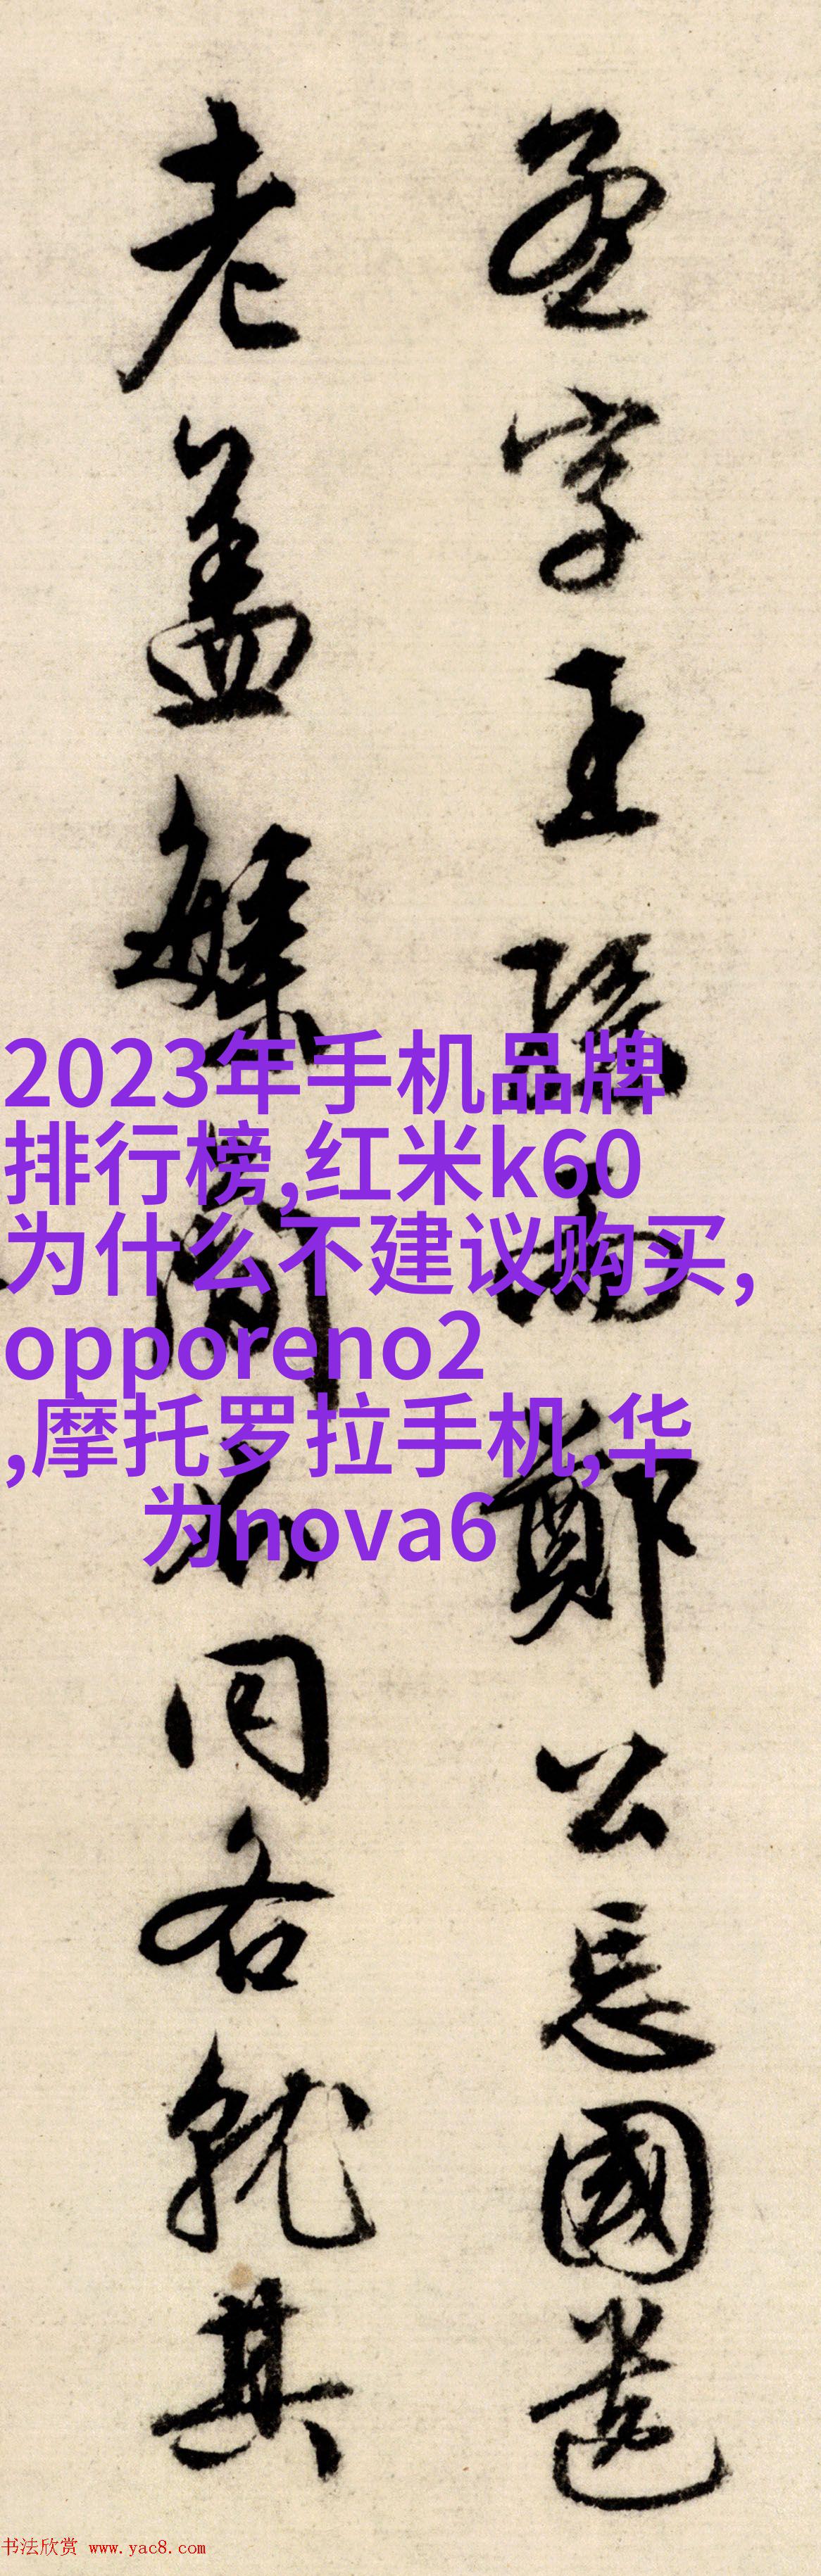 孟字王孫而鄭公忘國遺
老蓋繁簡不同各就其
2023年手机品牌
排行榜,红米k60
为什么不建议购买,
opporeno2
,摩托罗拉手机,华
为nova6
书法欣赏 www.yac8.com